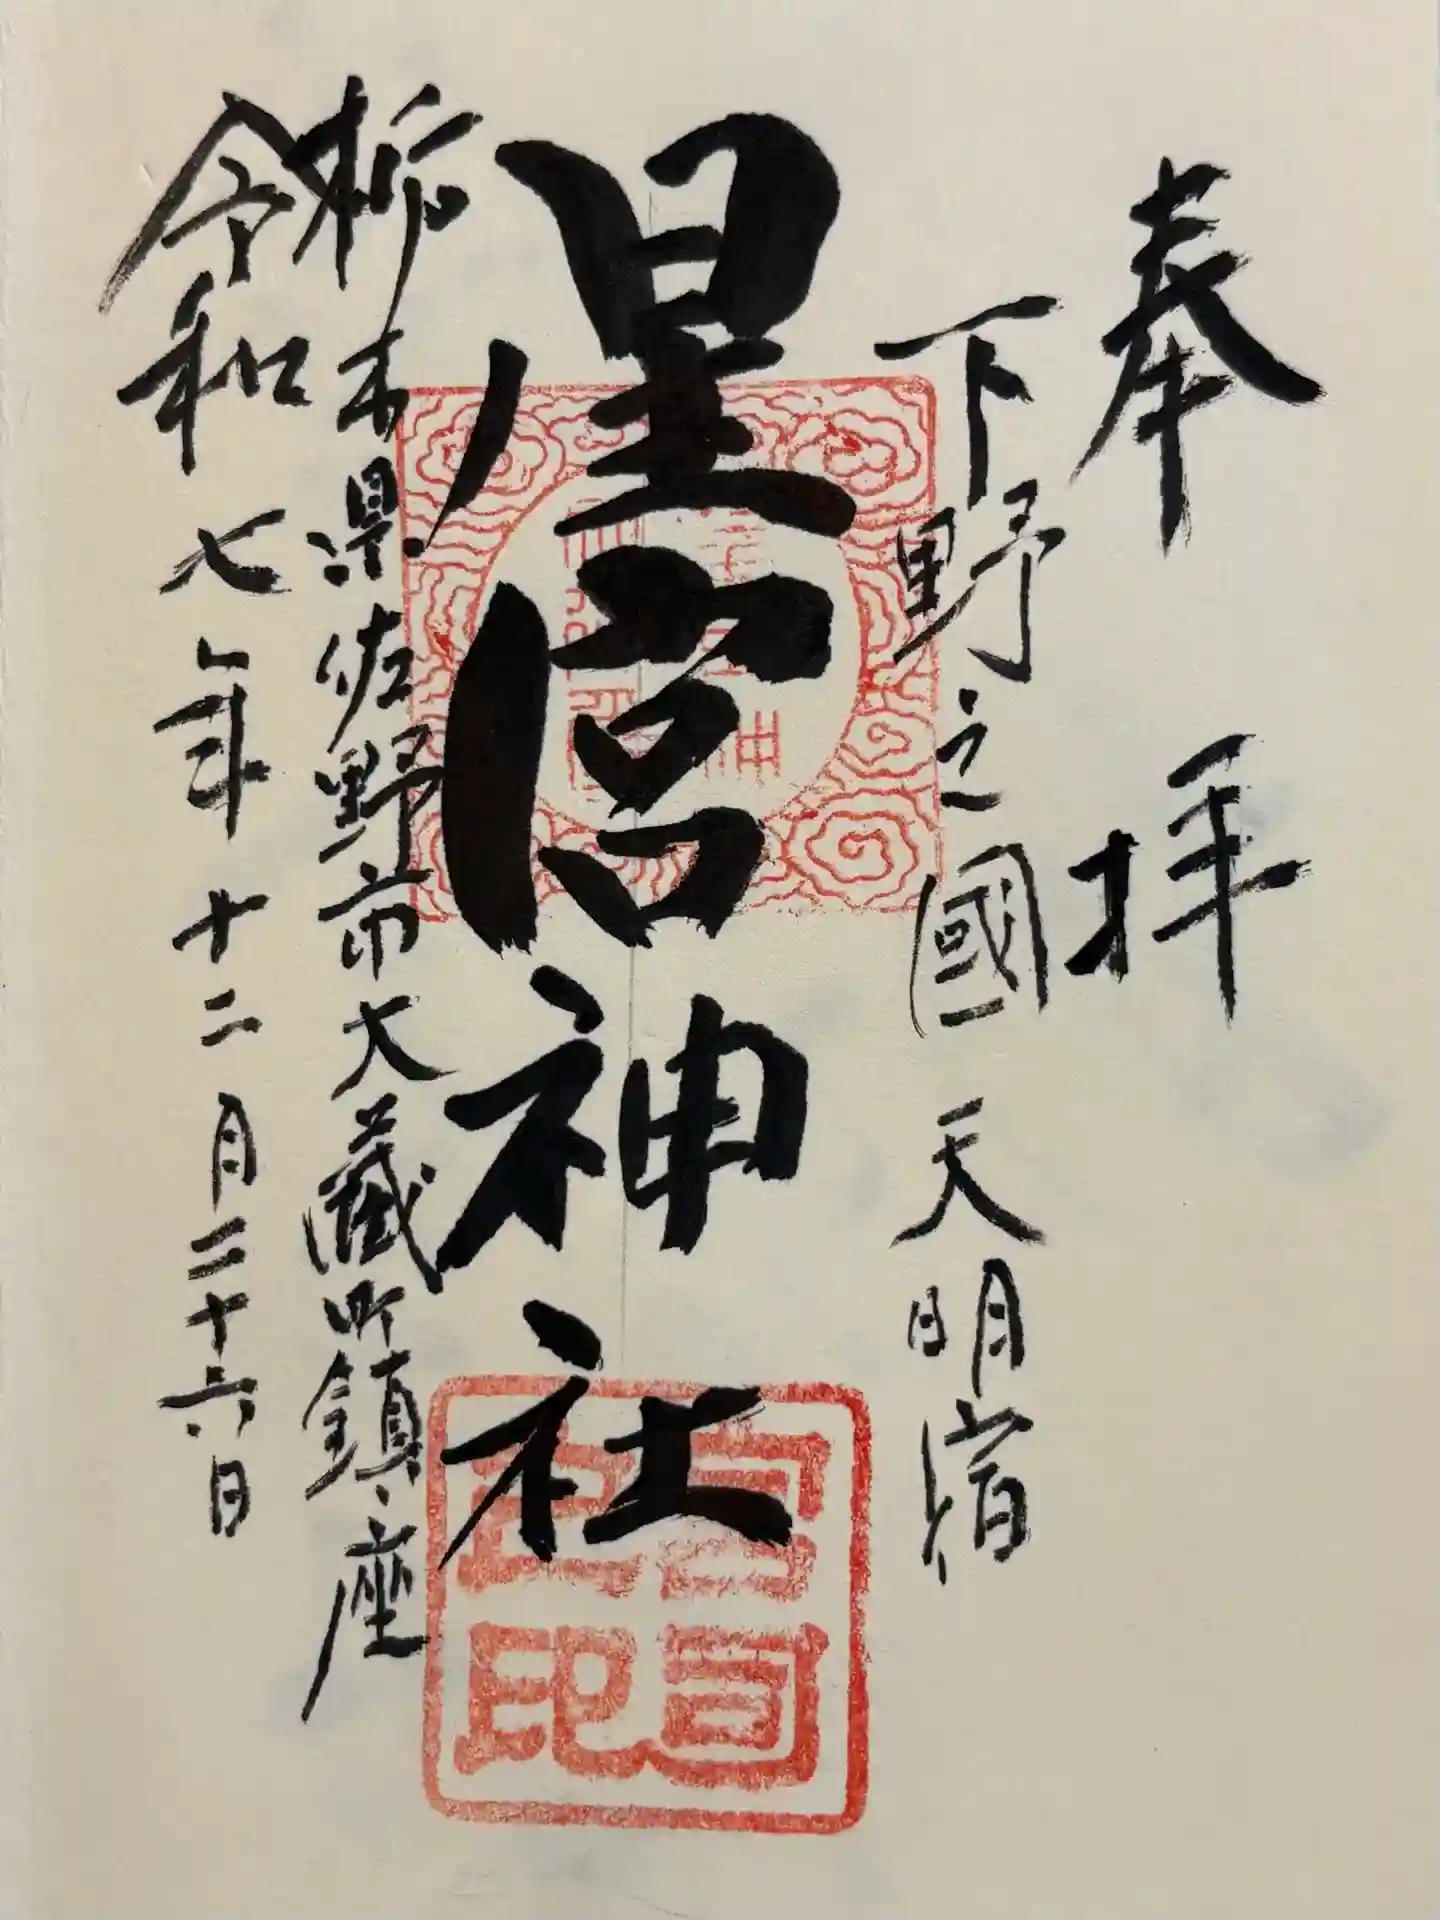 奉拝
下野之國 天明宿
星宮神社
栃木県佐野市大蔵町鎮座
令和七年十二月二十六日
宮司之印